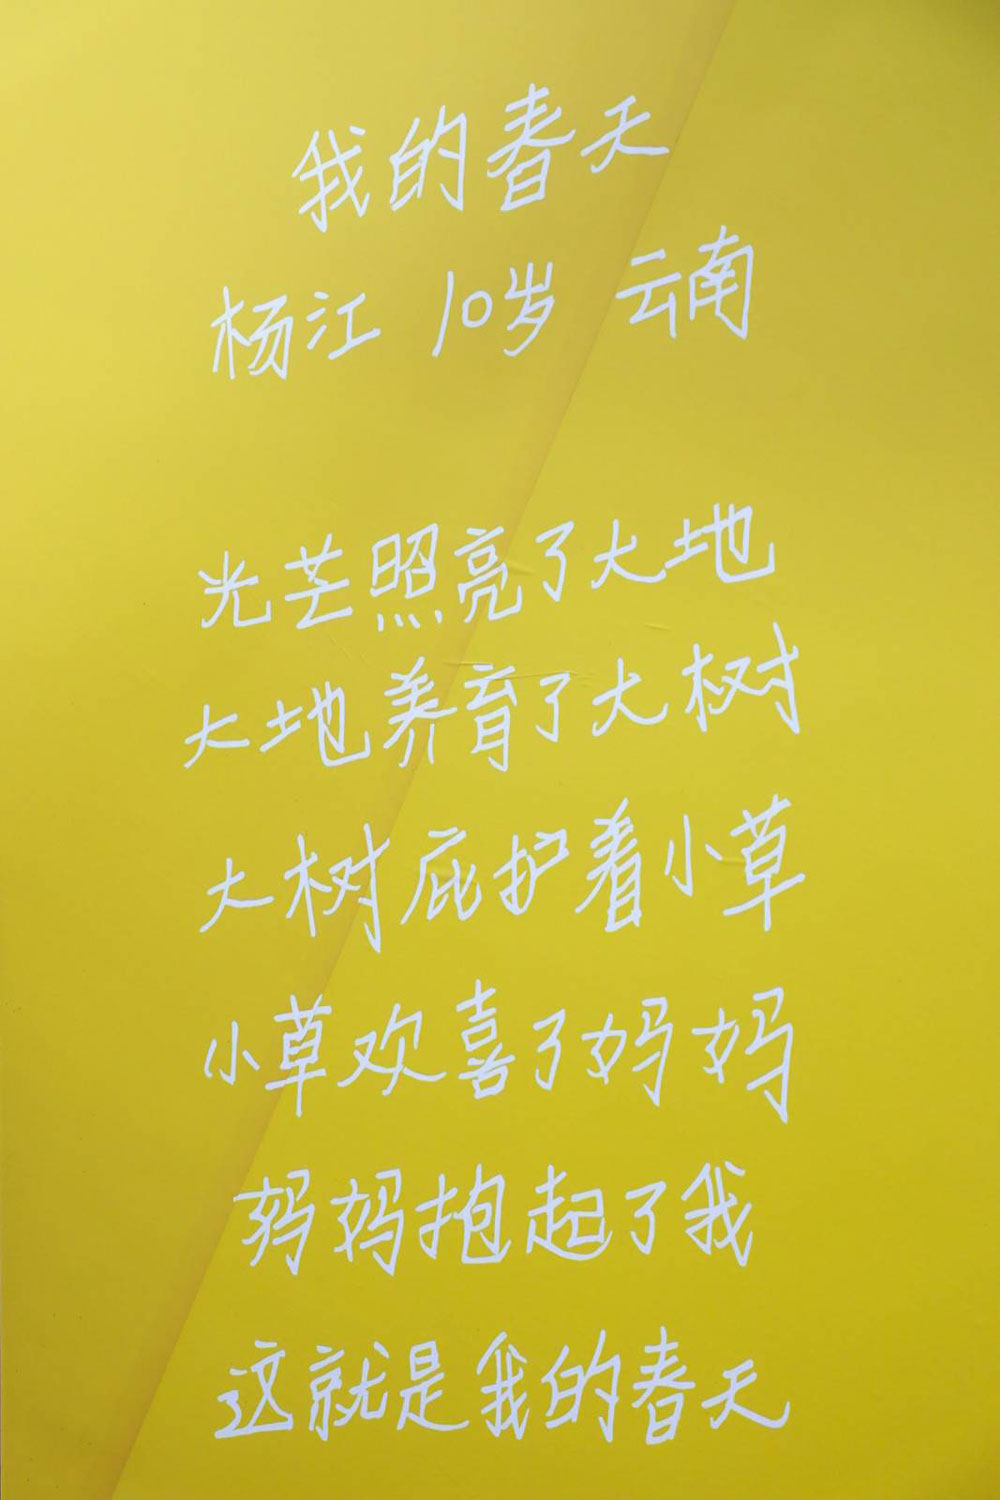 我的春天
杨江 10岁 云南
光芒照亮了大地
大地养育了大树
大树庇护着小草
小草欢喜了妈妈
妈妈抱起了我
这就是我的春天